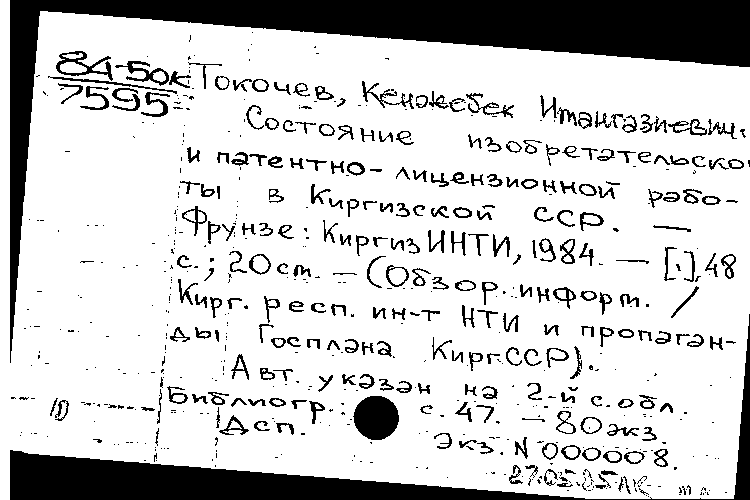 84-50к
7595
Токочев, Кенжебек Имангазиевич.
Состояние изобретательской
и патентно-лицензионной рабо-
ты в Киргизской ССР. —
Фрунзе: КиргизИНТИ, 1984. — [1], 48
с.; 20 см. — (Обзор. информ. /
Кирг. респ. ин-т НТИ и пропаган-
ды Госплана Кирг.ССР).
Авт. указан на 2-й с. обл.
Библиогр.: с. 47. — 80 экз.
Дсп. Экз. N 000008.
27.05.85
10